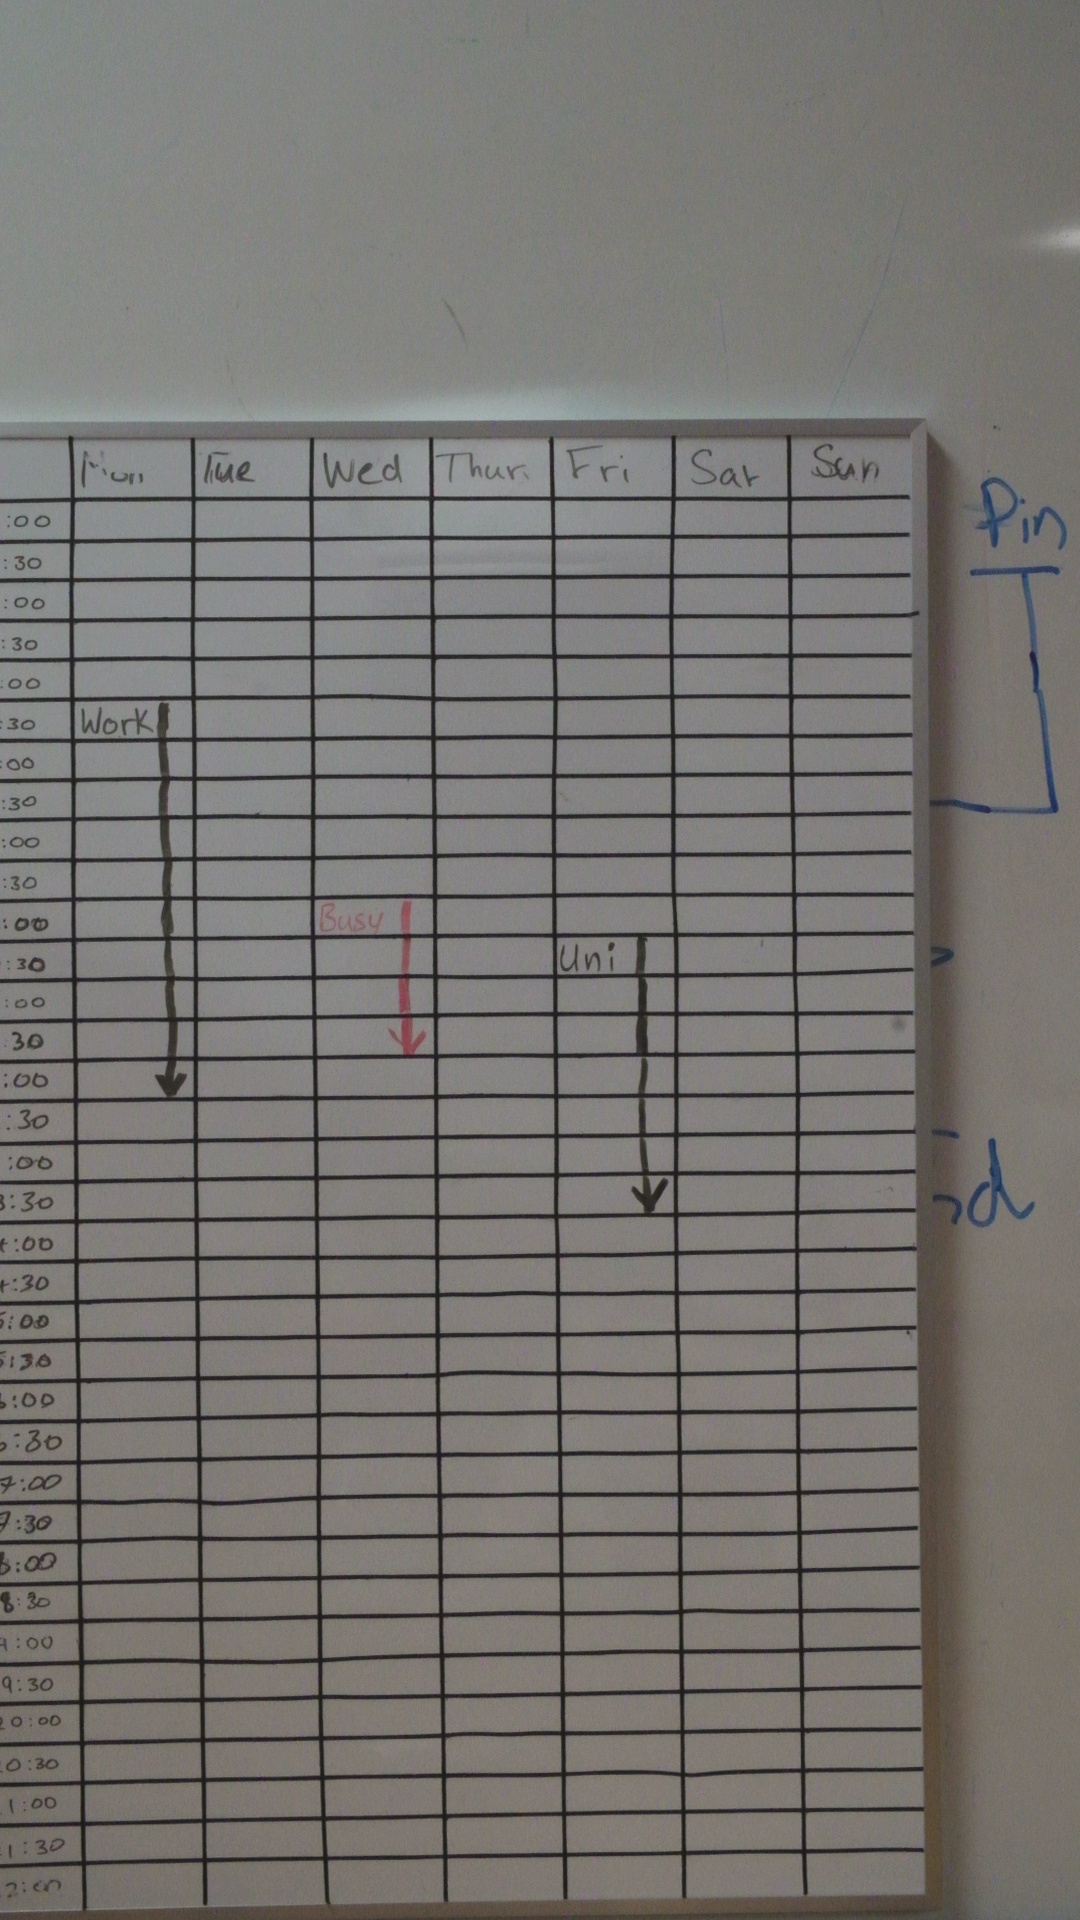 Mon Tue Wed Thur. Fri Sat Sun
Pin
:00
:30
:00
:30
:00
:30 Work
:00
:30
:00
:30
:00 Busy
:30 Uni
:00
30
:00
:30
:00
3:30
4:00
4:30
5:00
5:30
6:00
6:30
7:00
7:30
8:00
8:30
9:00
9:30
20:00
0:30
1:00
1:30
2:00